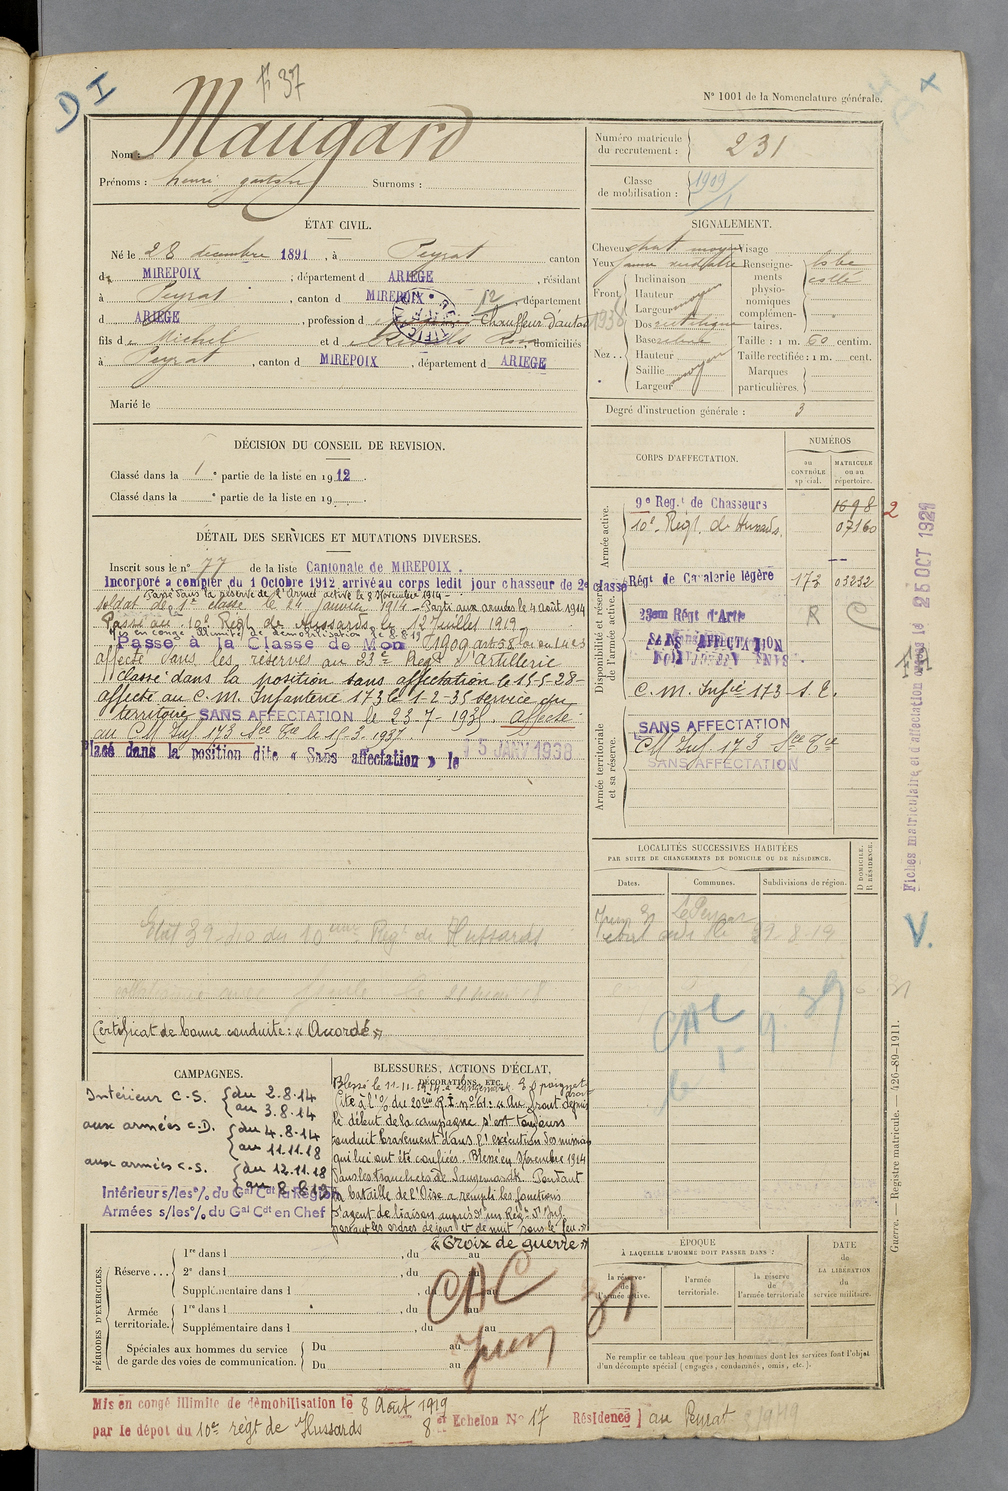 D I
№ 37
N° 1001 de la Nomenclature générale.
Nom : Maugard
Prénoms : henri gaston Surnoms :
Numéro matricule du recrutement : 231
Classe de mobilisation : 1909
ÉTAT CIVIL.
Né le 28 décembre 1891, à Peyrat canton
d MIREPOIX, département d ARIEGE, résidant
à Peyrat, canton d MIREPOIX, département
d ARIEGE, profession d Chauffeur d'autos 1938
fils d Michel et d domiciliés
à Peyrat, canton d MIREPOIX, département d ARIEGE
Marié le
SIGNALEMENT.
Cheveux chat. moyen Visage
Yeux jaune verdâtre Renseignements physionomiques complémentaires. lobe collé
Front Inclinaison
Hauteur moyen
Largeur
Nez Dos rectiligne
Base
Hauteur moyen
Saillie
Largeur
Taille : 1 m. 60 centim.
Taille rectifiée : 1 m. cent.
Marques particulières.
Degré d'instruction générale : 3
DÉCISION DU CONSEIL DE REVISION.
Classé dans la 1e partie de la liste en 1912.
Classé dans la e partie de la liste en 19 .
DÉTAIL DES SERVICES ET MUTATIONS DIVERSES.
Inscrit sous le n° 77 de la liste Cantonale de MIREPOIX.
Incorporé à compter du 1 Octobre 1912 arrivé au corps ledit jour chasseur de 2e classe
Passé dans la réserve de l'Armée active le 8 Novembre 1914 -
soldat de 1e classe le 24 janvier 1914 - Parti aux armées le 4 août 1914
Passé au 10e Régt de Hussards le 12 juillet 1919
Mis en congé illimité de démobilisation le 8.8.19
Passé à la Classe de Mon 1909 art 58
affecté dans les réserves au 23e Regt d'Artillerie
classé dans la position sans affectation le 15-5-28-
affecté au C.M. Infanterie 173 le 1-2-35 service du
territoire SANS AFFECTATION le 23-7-1935. Affecté
au CM Inf 173 Sce Tre le 15.3.1937.
Placé dans la position dite « Sans affectation » le 15 JANV 1938
Etat 39 du 10eme Regt de Hussards
Certificat de bonne conduite : « Accordé »
CORPS D'AFFECTATION.
NUMÉROS
au CONTRÔLE spécial.
MATRICULE ou au répertoire.
Armée active.
9e Reg.t de Chasseurs 1698 2
10e Régt de Hussards. 07160
Disponibilité et réserve de l'armée active.
Régt de Cavalerie légère 173 03232
23em Régt d'Artie R C
SANS AFFECTATION
C.M. Infie 173 - S.T.
Armée territoriale et sa réserve.
SANS AFFECTATION
CM Inf 173 Sce Tre
SANS AFFECTATION
Fiches matriculaire et d'affectation le 25 OCT 1921
V.
LOCALITÉS SUCCESSIVES HABITÉES
PAR SUITE DE CHANGEMENTS DE DOMICILE OU DE RÉSIDENCE.
Dates. Communes. Subdivisions de région. D DOMICILE. R RÉSIDENCE.
Le Peyrat
CAC 39
CAMPAGNES.
Intérieur C.S. du 2.8.14
au 3.8.14
aux armées C.D. du 4.8.14
au 11.11.18
aux armées C.S. du 12.11.18
au 8.8.19
Intérieur s/les % du Gal Cdt la Région
Armées s/les % du Gal Cdt en Chef
BLESSURES, ACTIONS D'ÉCLAT, DÉCORATIONS, ETC.
Blessé le 11-11-1914 à poignet droit
Cité à l'O/ du 20eme R.I. n° 61 : « Au front depuis
le début de la campagne s'est toujours
conduit bravement dans l'exécution des missions
qui lui ont été confiées. Blessé en Novembre 1914
dans les tranchées de Langemarck. Pendant
la bataille de l'Oise a rempli les fonctions
d'agent de liaison auprès d'un Régt d'Inf.
portant les ordres de jour et de nuit sous le feu. »
« Croix de guerre »
PÉRIODES D'EXERCICES.
Réserve ... 1re dans l , du au
2e dans l , du au
Supplémentaire dans l , du au
Armée territoriale. 1re dans l , du au
Supplémentaire dans l , du au
Spéciales aux hommes du service de garde des voies de communication. Du au
Du au
CAC 39
Juin
ÉPOQUE
À LAQUELLE L'HOMME DOIT PASSER DANS :
la réserve de l'armée active.
l'armée territoriale.
la réserve de l'armée territoriale
DATE de LA LIBÉRATION du service militaire.
Ne remplir ce tableau que pour les hommes dont les services font l'objet d'un décompte spécial (engagés, condamnés, omis, etc.).
Guerre. — Registre matricule. — 426-89-1911.
Mis en congé illimité de démobilisation le 8 Août 1919
par le dépôt du 10e régt de Hussards 8e Echelon N° 17 Résidence au Peyrat